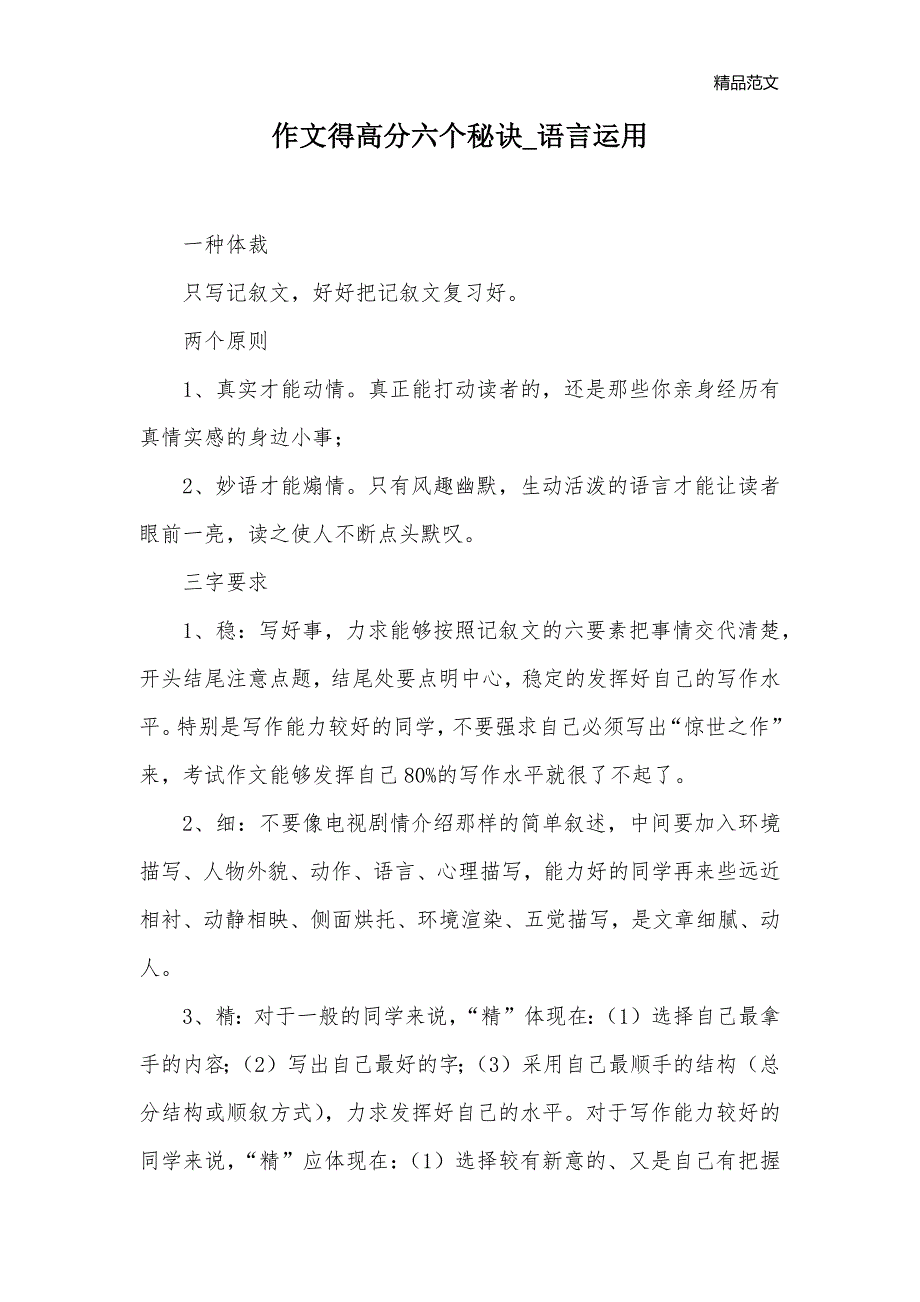 精品范文
作文得高分六个秘诀_语言运用
一种体裁
只写记叙文，好好把记叙文复习好。
两个原则
1、真实才能动情。真正能打动读者的，还是那些你亲身经历有
真情实感的身边小事；
2、妙语才能煽情。只有风趣幽默，生动活泼的语言才能让读者
眼前一亮，读之使人不断点头默叹。
三字要求
1、稳：写好事，力求能够按照记叙文的六要素把事情交代清楚，
开头结尾注意点题，结尾处要点明中心，稳定的发挥好自己的写作水
平。特别是写作能力较好的同学，不要强求自己必须写出“惊世之作”
来，考试作文能够发挥自己 80%的写作水平就很了不起了。
2、细：不要像电视剧情介绍那样的简单叙述，中间要加入环境
描写、人物外貌、动作、语言、心理描写，能力好的同学再来些远近
相衬、动静相映、侧面烘托、环境渲染、五觉描写，是文章细腻、动
人。
3、精：对于一般的同学来说，“精”体现在：（1）选择自己最拿
手的内容；（2）写出自己最好的字；（3）采用自己最顺手的结构（总
分结构或顺叙方式），力求发挥好自己的水平。对于写作能力较好的
同学来说，“精”应体现在：（1）选择较有新意的、又是自己有把握